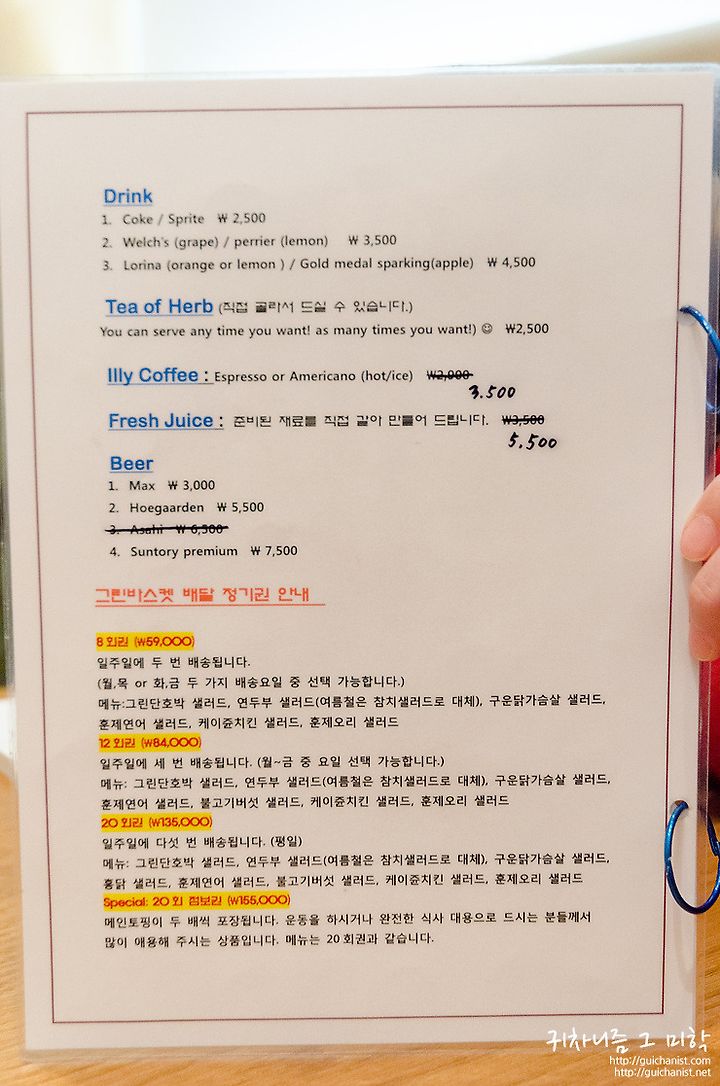 Drink
1. Coke / Sprite ₩ 2,500
2. Welch's (grape) / perrier (lemon) ₩ 3,500
3. Lorina (orange or lemon ) / Gold medal sparking(apple) ₩ 4,500
Tea of Herb (직접 골라서 드실 수 있습니다.)
You can serve any time you want! as many times you want!) ☺ ₩2,500
Illy Coffee : Espresso or Americano (hot/ice) ₩2,000
3.500
Fresh Juice : 준비된 재료를 직접 갈아 만들어 드립니다. ₩3,500
5.500
Beer
1. Max ₩ 3,000
2. Hoegaarden ₩ 5,500
3. Asahi ₩ 6,500
4. Suntory premium ₩ 7,500
그린바스켓 배달 정기권 안내
8 회권 (₩59,000)
일주일에 두 번 배송됩니다.
(월,목 or 화,금 두 가지 배송요일 중 선택 가능합니다.)
메뉴:그린단호박 샐러드, 연두부 샐러드(여름철은 참치샐러드로 대체), 구운닭가슴살 샐러드,
훈제연어 샐러드, 케이쥰치킨 샐러드, 훈제오리 샐러드
12 회권 (₩84,000)
일주일에 세 번 배송됩니다. (월~금 중 요일 선택 가능합니다.)
메뉴: 그린단호박 샐러드, 연두부 샐러드(여름철은 참치샐러드로 대체), 구운닭가슴살 샐러드,
훈제연어 샐러드, 불고기버섯 샐러드, 케이쥰치킨 샐러드, 훈제오리 샐러드
20 회권 (₩135,000)
일주일에 다섯 번 배송됩니다. (평일)
메뉴: 그린단호박 샐러드, 연두부 샐러드(여름철은 참치샐러드로 대체), 구운닭가슴살 샐러드,
홍닭 샐러드, 훈제연어 샐러드, 불고기버섯 샐러드, 케이쥰치킨 샐러드, 훈제오리 샐러드
Special: 20 회 점보권 (₩155,000)
메인토핑이 두 배씩 포장됩니다. 운동을 하시거나 완전한 식사 대용으로 드시는 분들께서
많이 애용해 주시는 상품입니다. 메뉴는 20 회권과 같습니다.
귀차니즘 그 미학
http://guichanist.com
http://guichanist.net